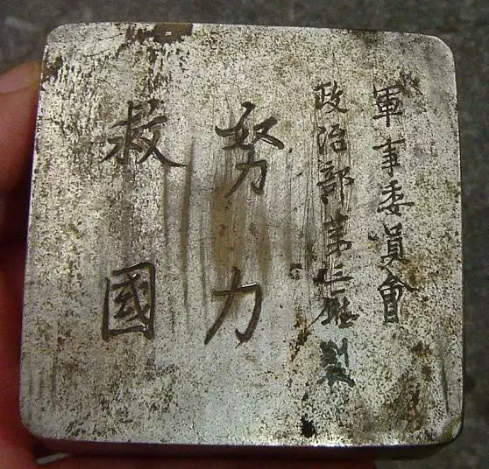 軍事委員會
政治部第三廳製
努力
救國